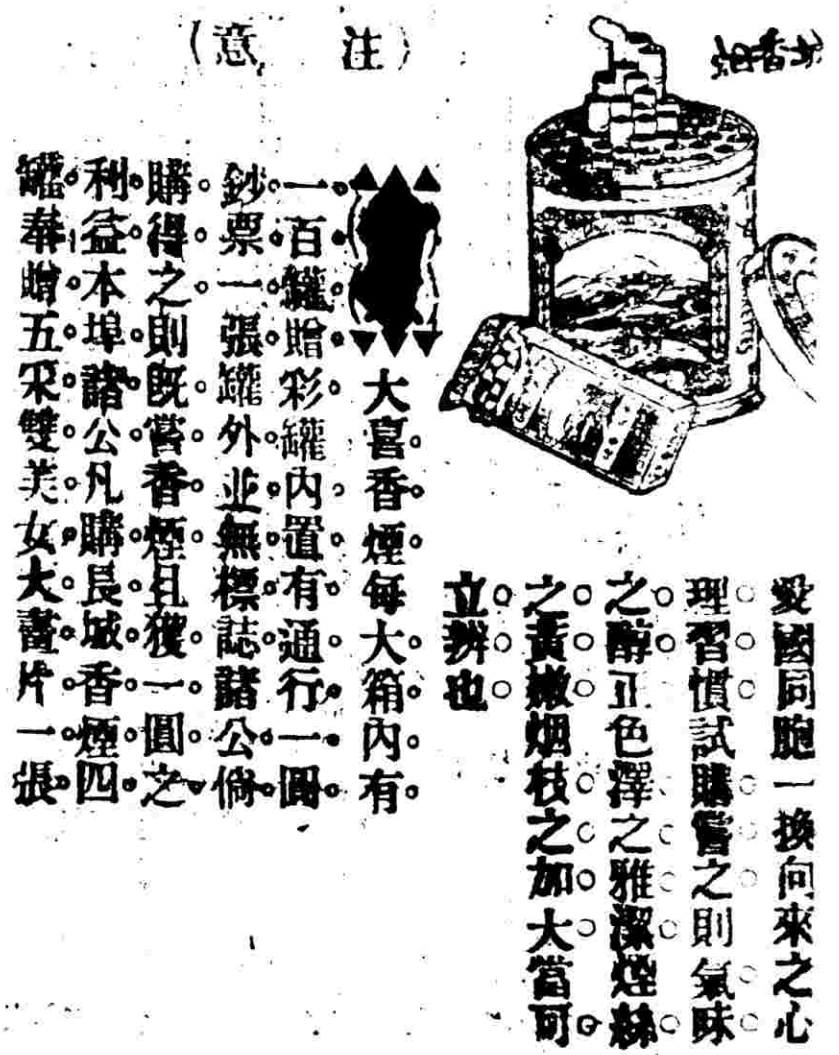 城香烟
愛國同胞一換向來之心
理習慣試購嘗之則氣味
之醇正色澤之雅潔煙絲
之黃嫩烟枝之加大當可
立辨也
（注意）
大喜香煙每大箱內有
一百罐贈彩罐內置有通行一圓
鈔票一張罐外並無標誌諸公倘
購得之則既嘗香煙且獲一圓之
利益本埠諸公凡購長城香煙四
罐奉贈五采雙美女大畫片一張